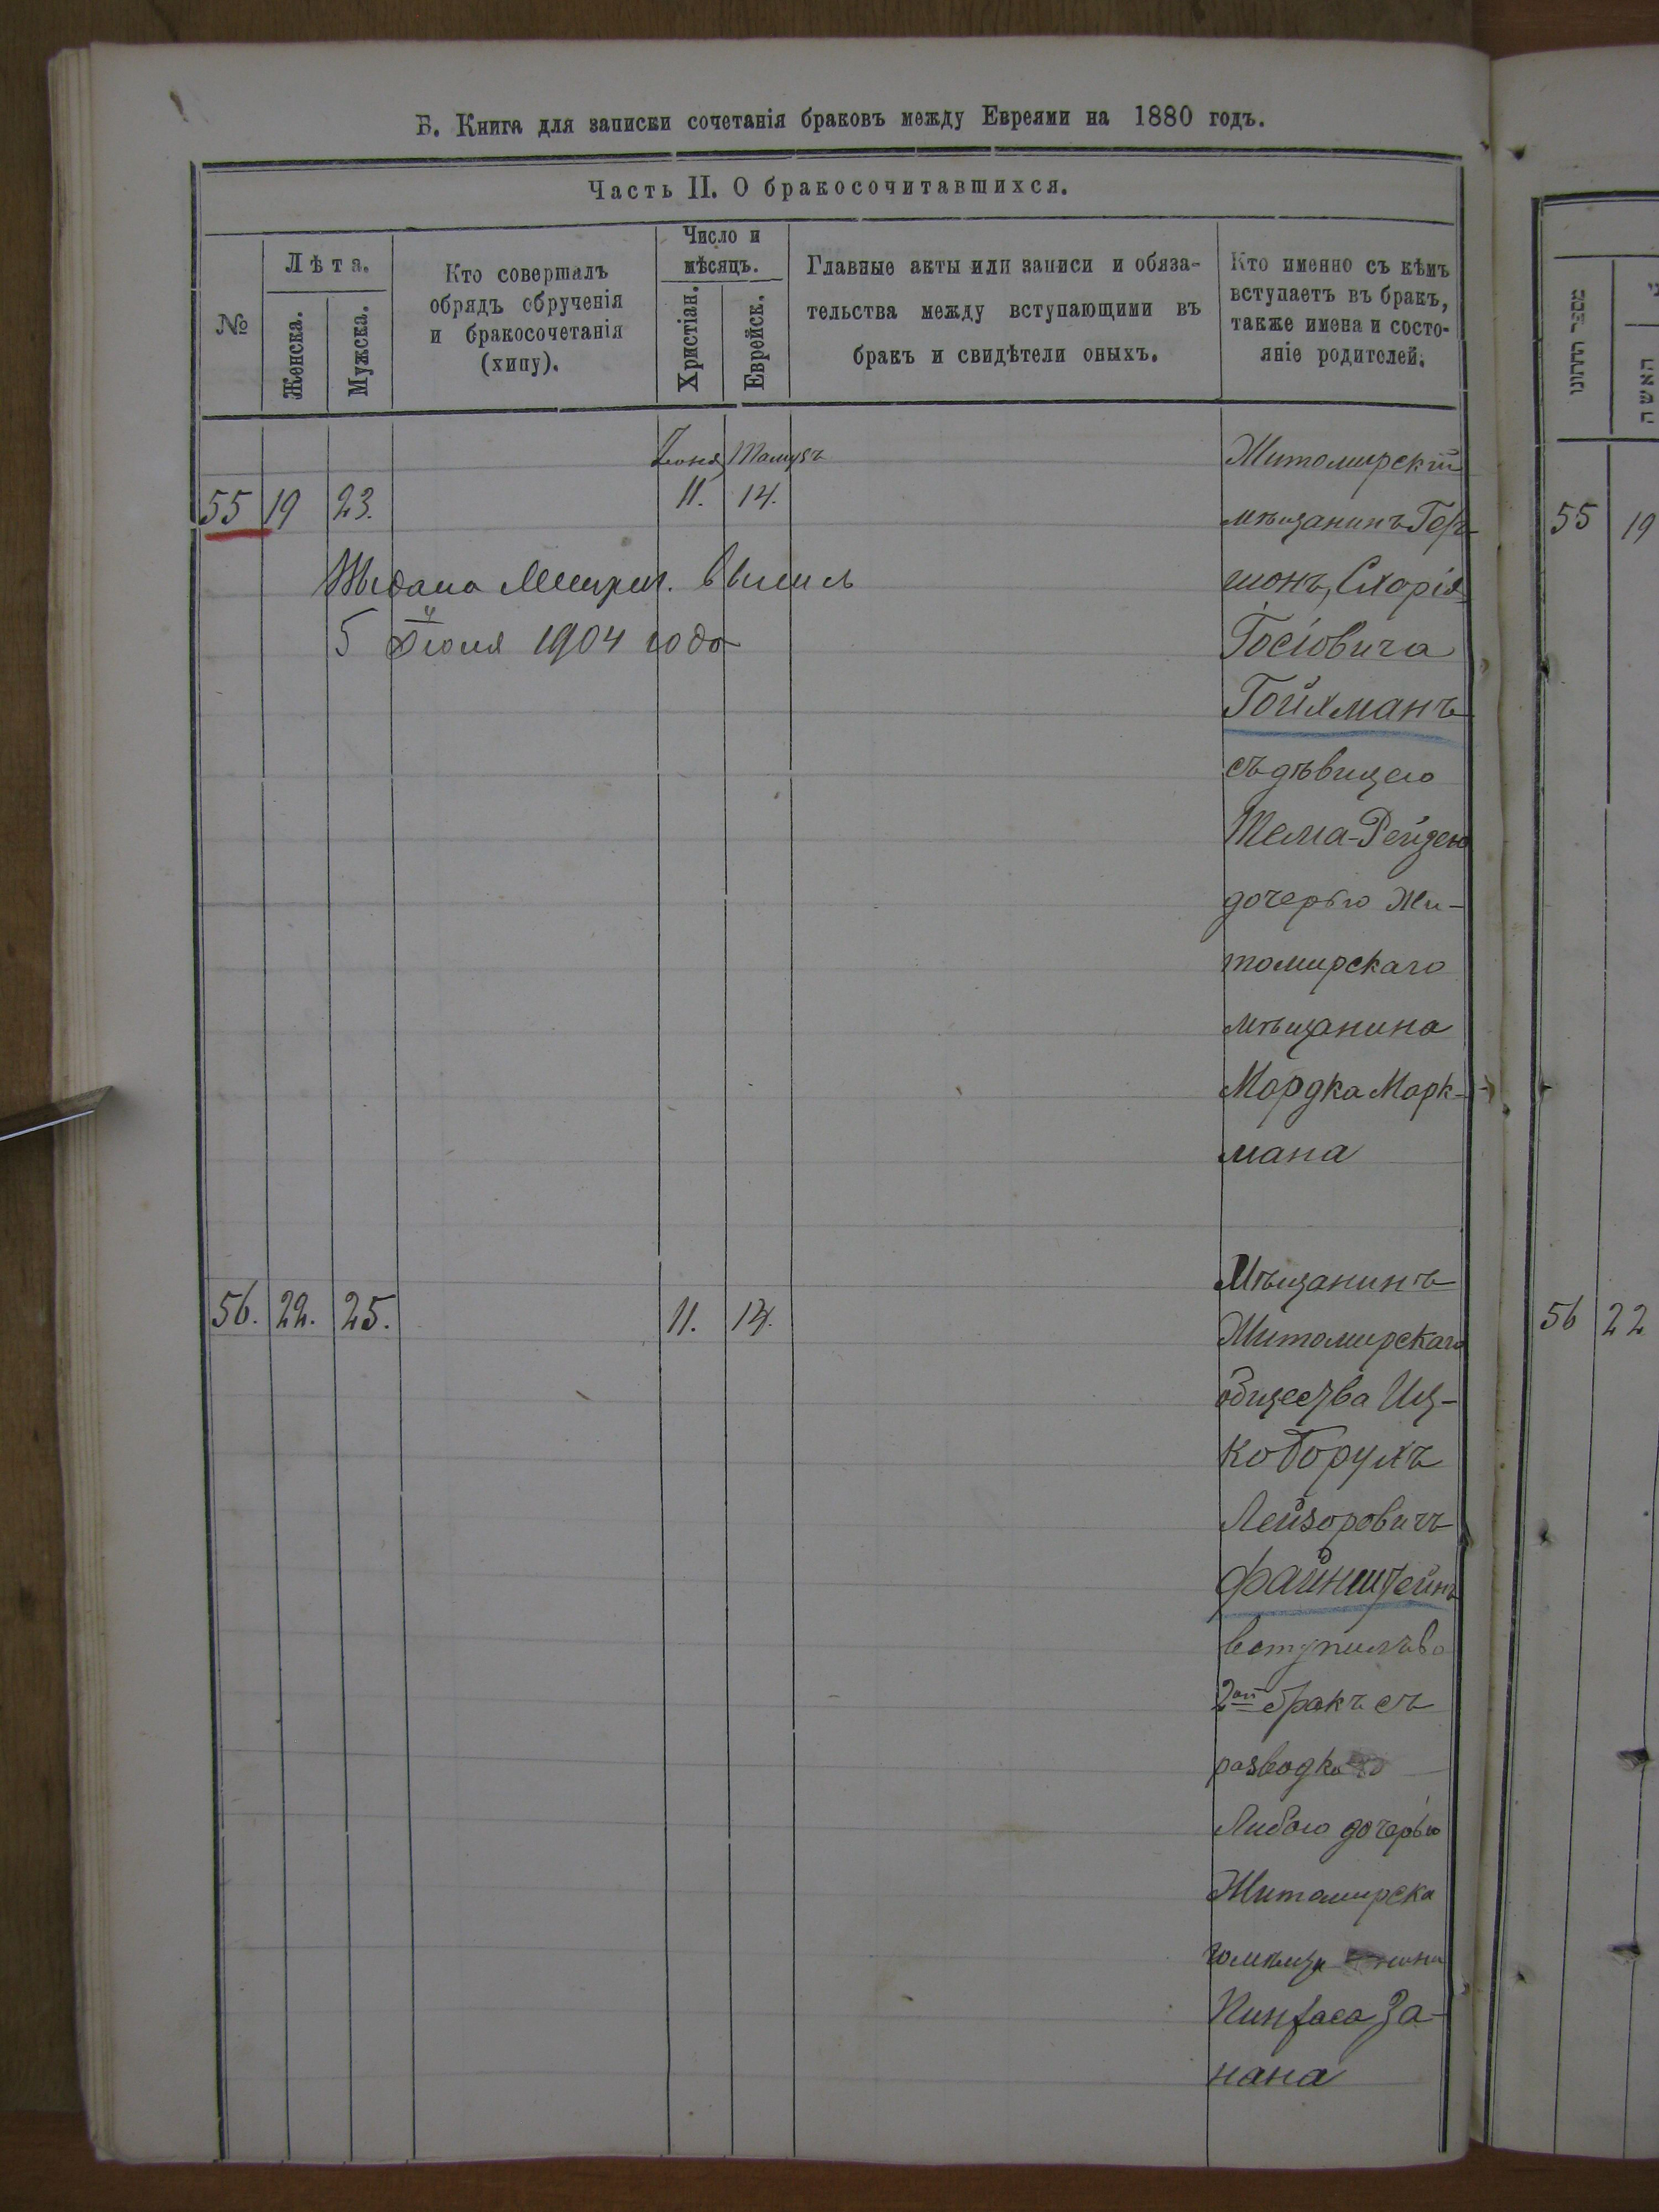 Б. Книга для записки сочетанія браковъ между Евреями на 1880 годъ.
Часть II. О бракосочитавшихся.
№
Лѣта.
Женска.
Мужска.
Кто совершалъ
обрядъ обрученія
и бракосочетанія
(хипу).
Число и
мѣсяцъ.
Христіан.
Еврейск.
Главные акты или записи и обяза-
тельства между вступающими въ
бракъ и свидѣтели оныхъ.
Кто именно съ кѣмъ
вступаетъ въ бракъ,
также имена и состо-
яніе родителей.
Іюня Тамузъ
55 19 23. 11. 14.
Житомирскій
мѣщанинъ Гер-
шонъ, Схарія
Іосіовича
Гойхманъ
съ дѣвицею
Тема-Рейзею
дочерью Жи-
томирскаго
мѣщанина
Мордка Марк-
мана
Выдана Метрич. выпись
5 Іюля 1904 года
56. 22. 25. 11. 14.
Мѣщанинъ
Житомирскаго
общества Иц-
ко Борухъ
Лейзоровичъ
Файнштейнъ
вступилъ во
2ой бракъ съ
разводкою
Либою дочерью
Житомирска
го
Пинхаса За-
нана
מספר החתונו
האשה
55 19
56 22